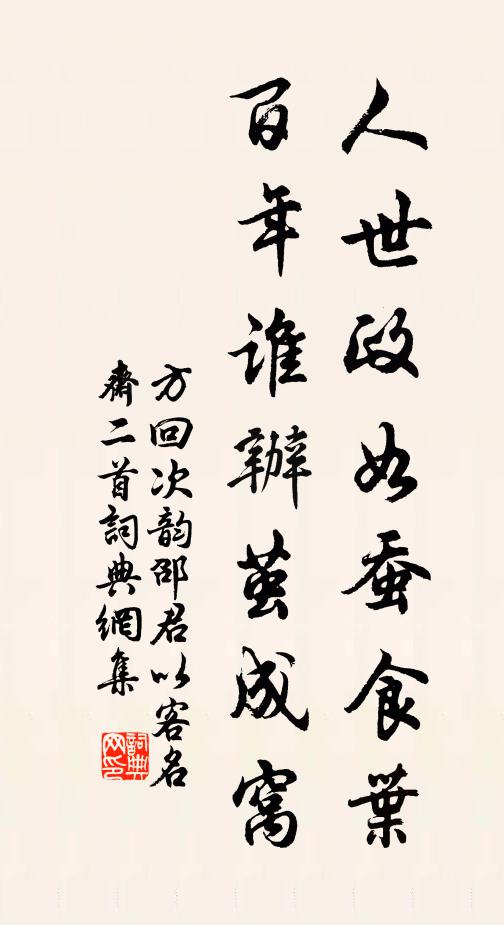 人世政如蚕食葉
百年誰辦茧成窩
方回次韵邵君以客名
齋二首詞典網集
詞典网印